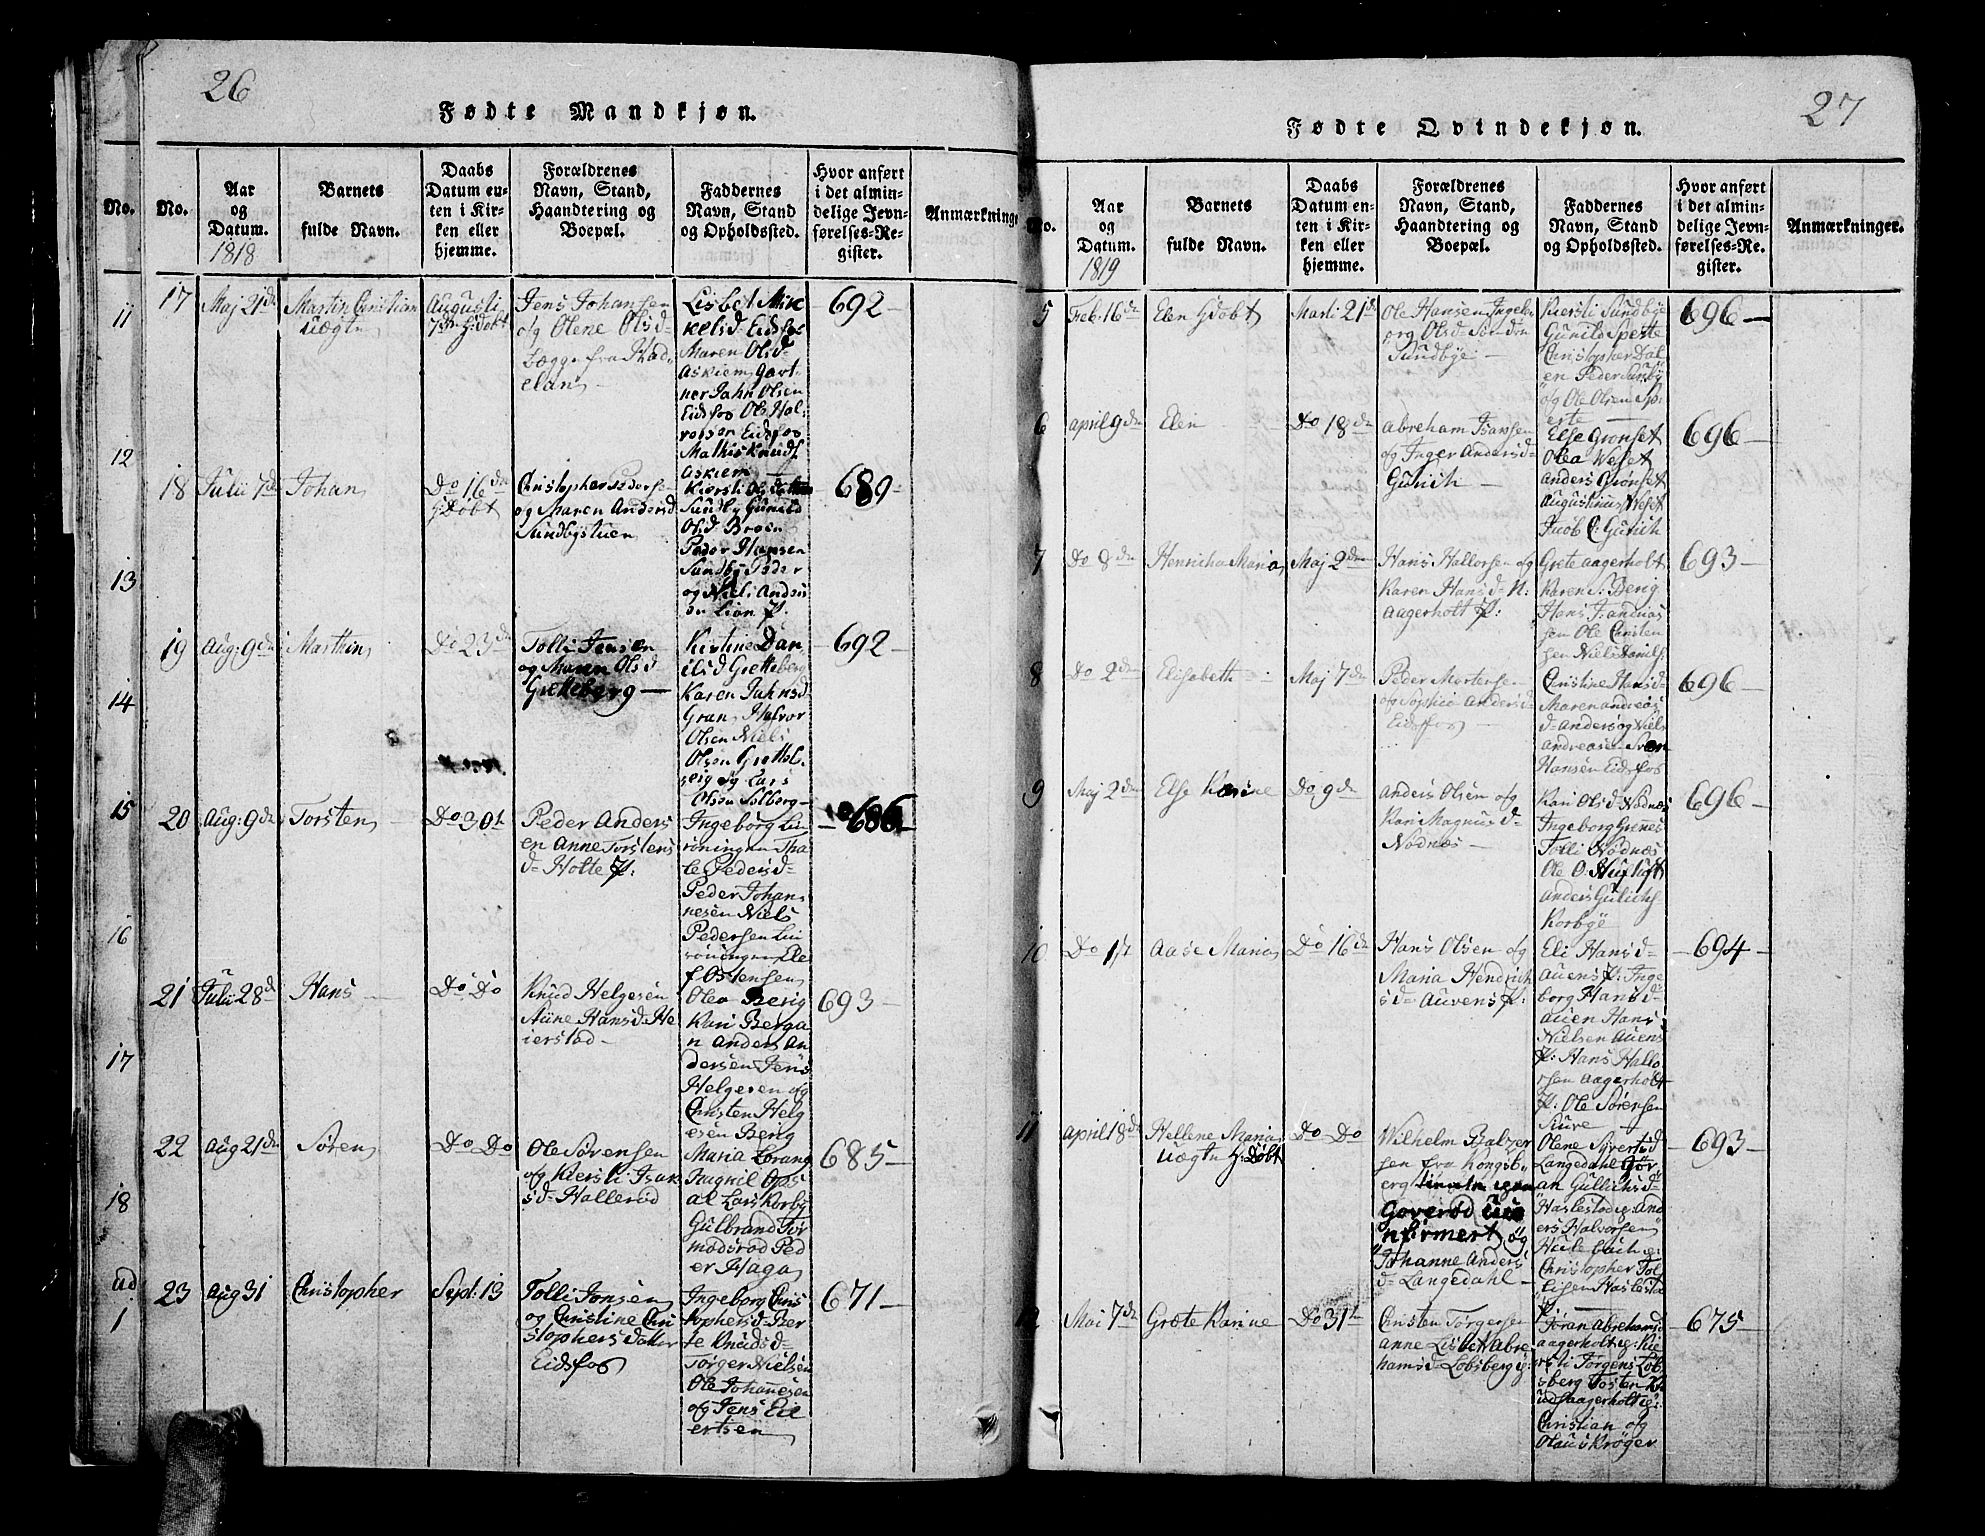 26
Fødte Mandkjøn.
No.
No.
Aar
og
Datum.
1818
Barnets
fulde Navn.
Daabs
Datum en-
ten i Kir-
ken eller
hjemme.
Forældrenes
Navn, Stand,
Haandtering og
Boepæl.
Faddernes
Navn, Stand
og Opholdssted.
Hvor anført
i det almin-
delige Jevn-
førelses-Re-
gister.
Anmærkninger
11
12
13
14
15
16
17
18
ad
1
17
Maj 21de
Martin Christian
Uægte
Augusti
7de H: døbt
Jens Johansen
og Olene Olsd
Lisbet Mik
kelsd Eidsfos
Maren Olsd
Askiem Gart
ner Jahn Olsen
Eidsfos Ole Hal
vorsen Eidsfos
Mathis Knuds
Askiem
692
18
Julii 7de
Johan
Do 16de
H: Døbt
Christopher Pedersen
og Maren Andersd
Sundbystuen
Kiersti Olsdatter
Sundby Gunild
Olsd Broen
Peder Hansen
Sundby Peder
og Niels Anders
en Lien
689
19
Aug: 9de
Marthin
Do 23de
Tolli Jensen
og Maren Olsd
Gretteberg
Kirstine Dan
ilsd Gretteberg
Karen Jahnsd
Gran Halvor
Olsen Niels
Olsen
og Lars
Olsen Solberg
692
20
Aug: 9de
Torsten
Do 30te
Peder Anders
en Anne Torstens
d Holte
Ingeborg
Peder Johan
nesen Niels
Pedersen
Ostensen
686
21
Julii 28de
Hans
Do Do
Knud Helgesen
Anne Hansd He
ierstad
Olea Berig
Kari Berga
n Anders An
dersen Jens
Helgesen og
Christen Helg
esen Berig
693
22
Aug 21de
Søren
Do Do
Ole Sørensen
og Kiersti Isak
sd Hallerød
Maria Lorang
Ingnil Ops
al Lars Korby
Gulbrand For
modsrød Ped
er Haga
685
23
Aug 31
Christopher
Sept: 13
Tolli Jonsen
og Christine Chri
stophersdatter
Eidsfos
Ingeborg Chris
tophersd Ber
te Knudsd
Torger Nielsen
Ole Johannesen
og Jens Eil
ertsen
671
27
Fødte Qvindekjøn.
No.
Aar
og
Datum.
1819
Barnets
fulde Navn.
Daabs
Datum en-
ten i Kir-
ken eller
hjemme.
Forældrenes
Navn, Stand,
Haandtering og
Boepæl.
Faddernes
Navn, Stand
og Opholdssted.
Hvor anført
i det almin-
delige Jevn-
førelses-Re-
gister.
Anmærkninger.
5
Feb: 16de
Elen H døbt
Marti 21de
Ole Hansen Ingeb
org Olsd Søndre
Sundbye
Kiersti Sundbye
Gunild Sperte
Christopher Dal
en Peder Sundby
og Ole Olsen Sp
erte
696
6
April 9de
Elen
Do 18de
Abraham Isaksen
og Inger Andersd
Gurich
Else Grønset
Olea Weset
Anders Grønset
Augustinus Weset
Jacob C: Gurich
696
7
Do 8de
Henricha Maria
Maj 2de
Hans Hallorsen og
Karen Hansd N:
Aagerholt
Grete Aagerholt
Karen S: Berig
Hans J: Andreas
sen Ole Christen
sen Niels Daniels
693
8
Do 2de
Elisabeth
Maj 7de
Peder Mortensen
og Sophie Andersd
Eidsfos
Christine Hansd
Maren Andreas
d Anders og Niels
Andreasen Svær
Hansen Eidsfos
696
9
Maj 2de
Else Karine
Do 9de
Anders Olsen og
Kari Magnusd
Nødnæs
Kari Olsd Nødnæs
Ingeborg Grenes
Tolli Nødnæs
Ole O:
Anders Gulichs
Korbye
696
10
Do 1st
Aase Maria
Do 16de
Hans Olsen og
Maria Hendrich
sd Auvens
Eli Hansd
Auens Inge
borg Hansd
Auen Hans
Nielsen Auens
Hans Hallo
rsen Aagerholt
Ole Sørensen
694
11
April 18de
Hellene Maria
Uægte H: Døbt
Do Do
Wilhelm Balzer
sen fra Kongsb
erg
Goverød
nfirmert og
Johanne Anders
d Langedahl
Olene Syvertsd
Langedahl Gør
an Gullichsd
Haslestad eg: And
ers Halvorsen
Christopher Tol
efsen Haslestad
693
12
Mai 7de
Grete Karine
Do 31te
Christen Torgersen
Anne Lisbet Abra
hamsd Løbsberg ej:
Jøran Abrahamsd
Aagerholt eg: Kie
rsti Jørgens Løb
sberg Tosten Kn
uds Aagerholt ej:
Christian og
Olaus Krøger
675